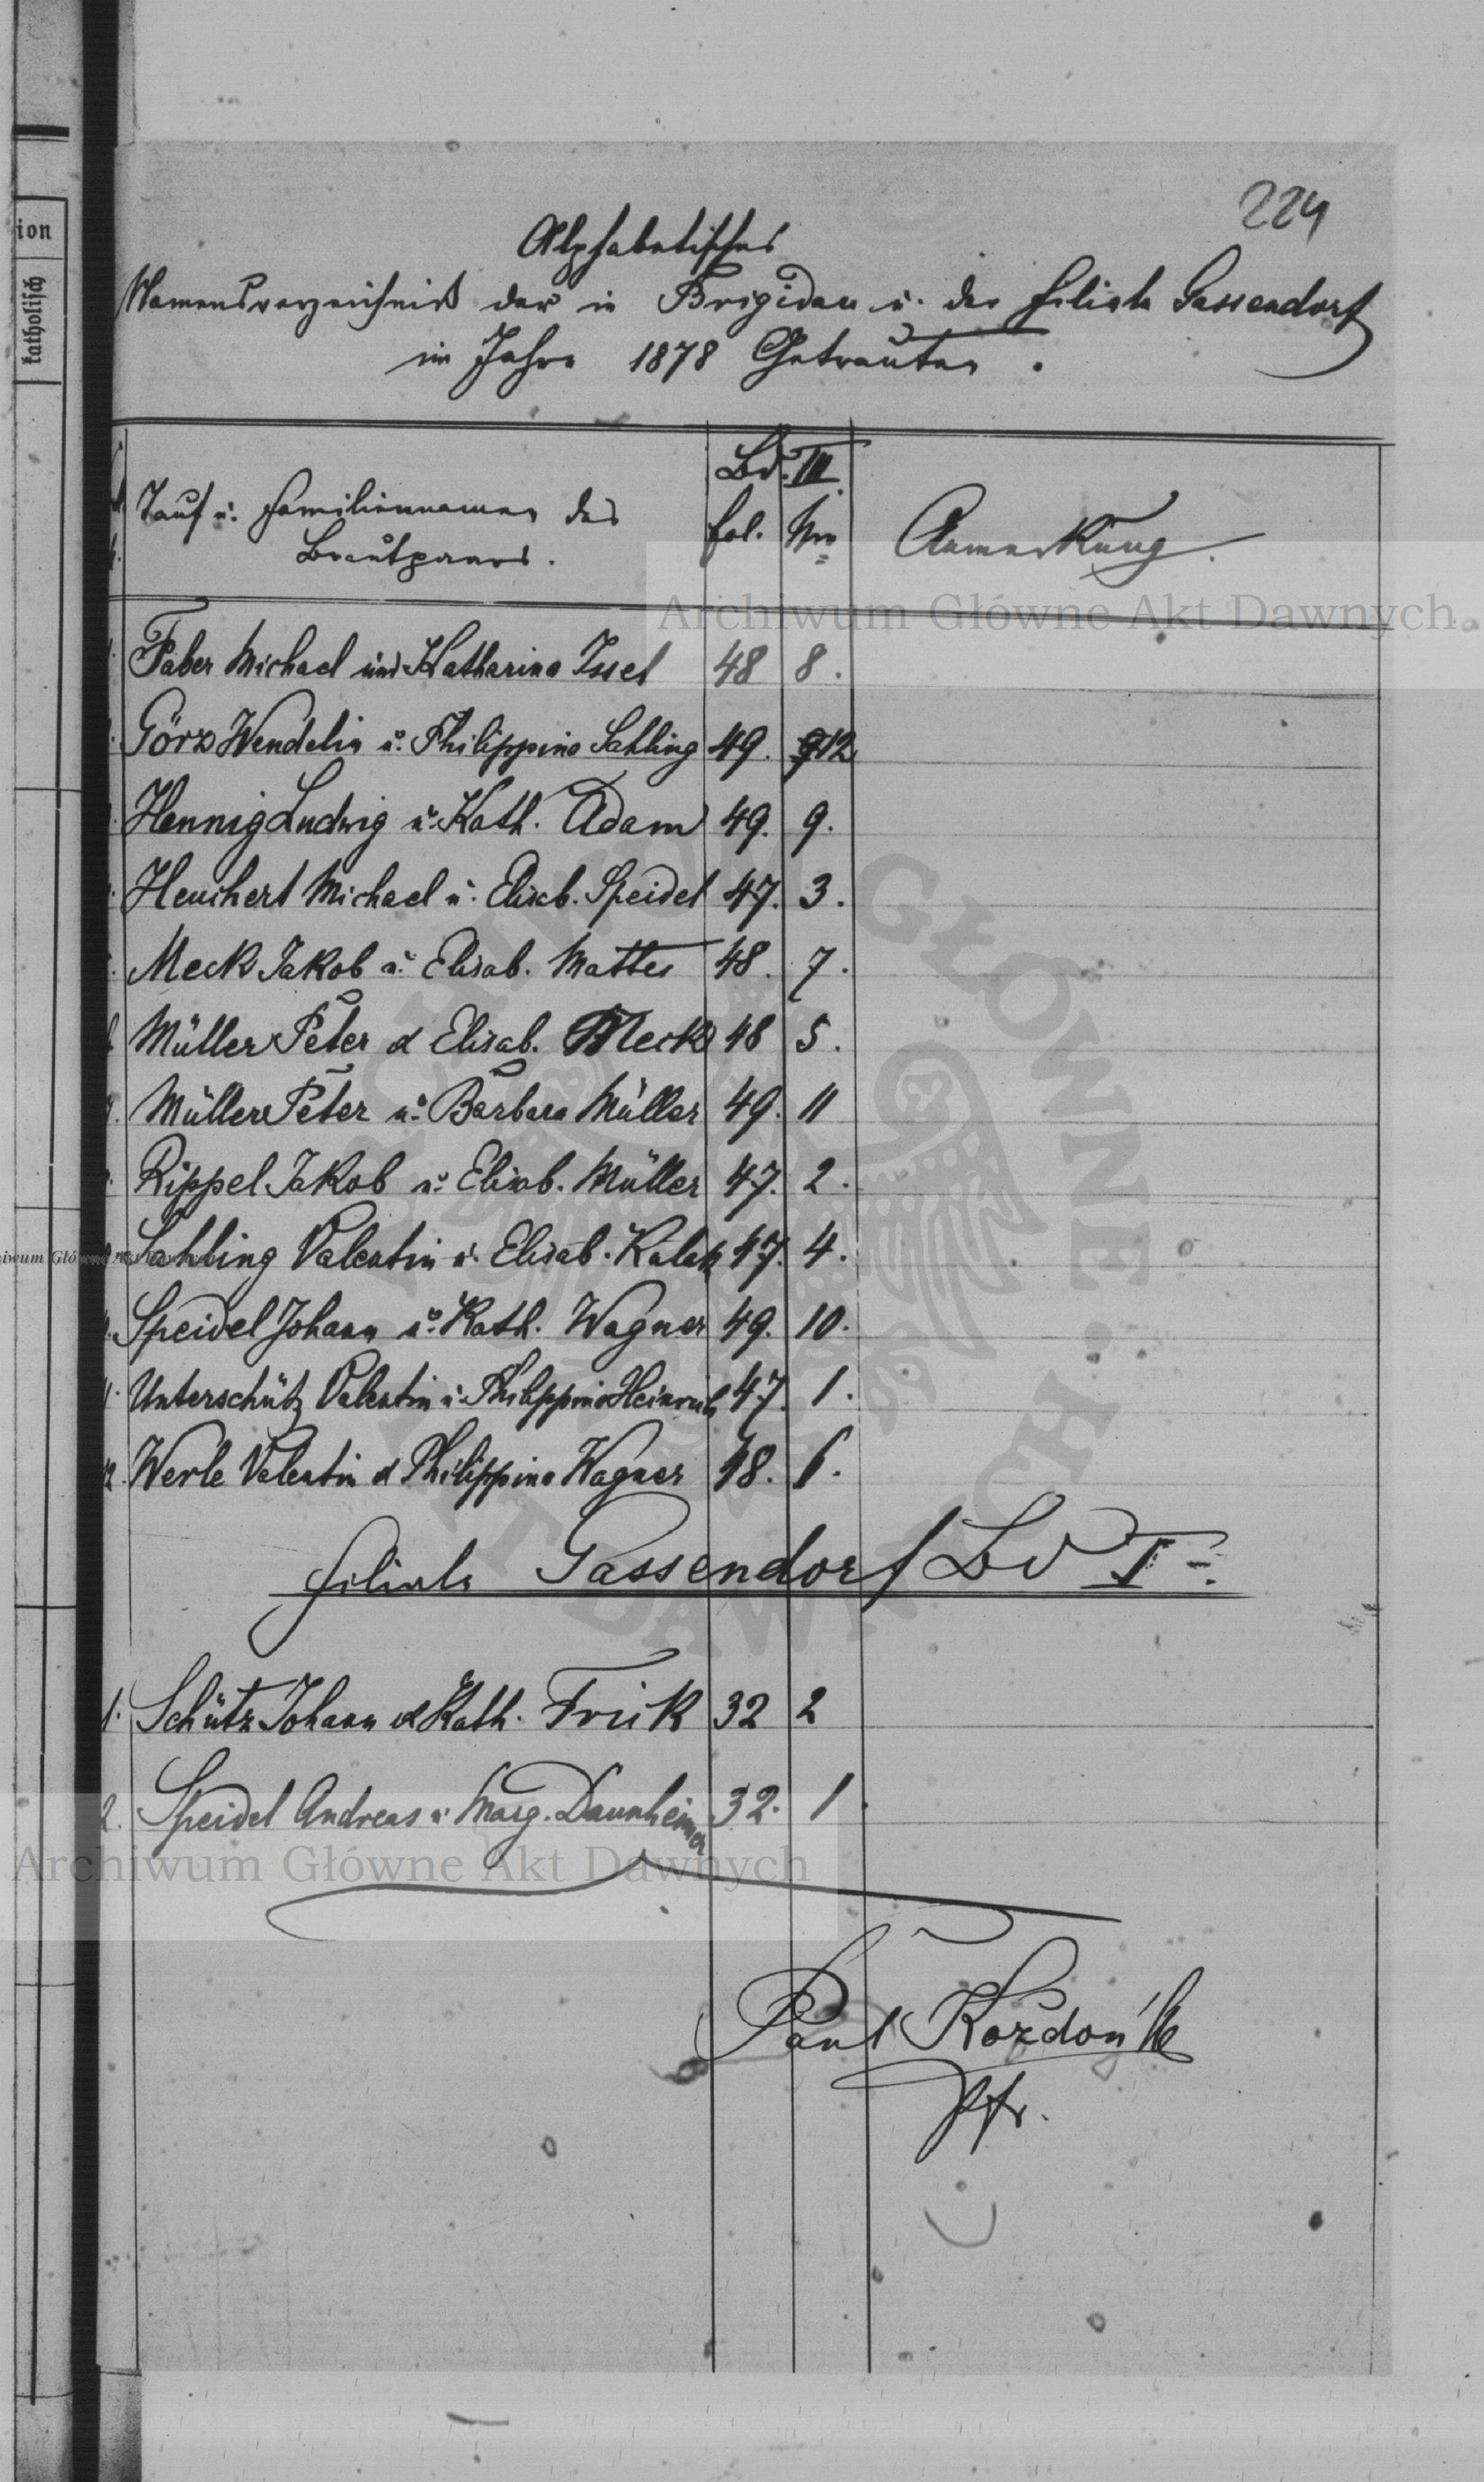 224
Alphabetisches
Namensverzeichniß der in Brigidau u. der Filiale Gassendorf
im Jahre 1878 Getrauten.
Bd. III.
Tauf u. Familiennamen des Brautpaares. fol. Nro Anmerkung.
Faber Michael und Katharina Issel 48 8.
Görz Wendelin u. Philippina Sahling 49. 12
Hennig Ludwig u. Kath. Adam 49. 9.
Heuchert Michael u. Eliseb. Speidel 47. 3.
Meck Jakob u. Elisab. Mattes 48. 7.
Müller Peter & Elisab. Meck 48 5.
Müller Peter u. Barbara Müller 49. 11
Rippel Jakob u. Elisab. Müller 47. 2.
Sahling Valentin u. Elisab. 47. 4.
Speidel Johann u. Kath. Wagner 49. 10.
11. Unterschütz Valentin u. Philippina Heinrich 47. 1.
12. Werle Valentin & Philippina Wagner 48. 6.
Filiale Gassendorf Bd I
1. Schütz Johann & Kath. Frick 32 2
2. Speidel Andreas u. Marg. Daunheimer 32. 1.
Paul Kozdon
Pfr.
ion
katholisch
Archiwum Główne Akt Dawnych
Archiwum Główne Akt Dawnych